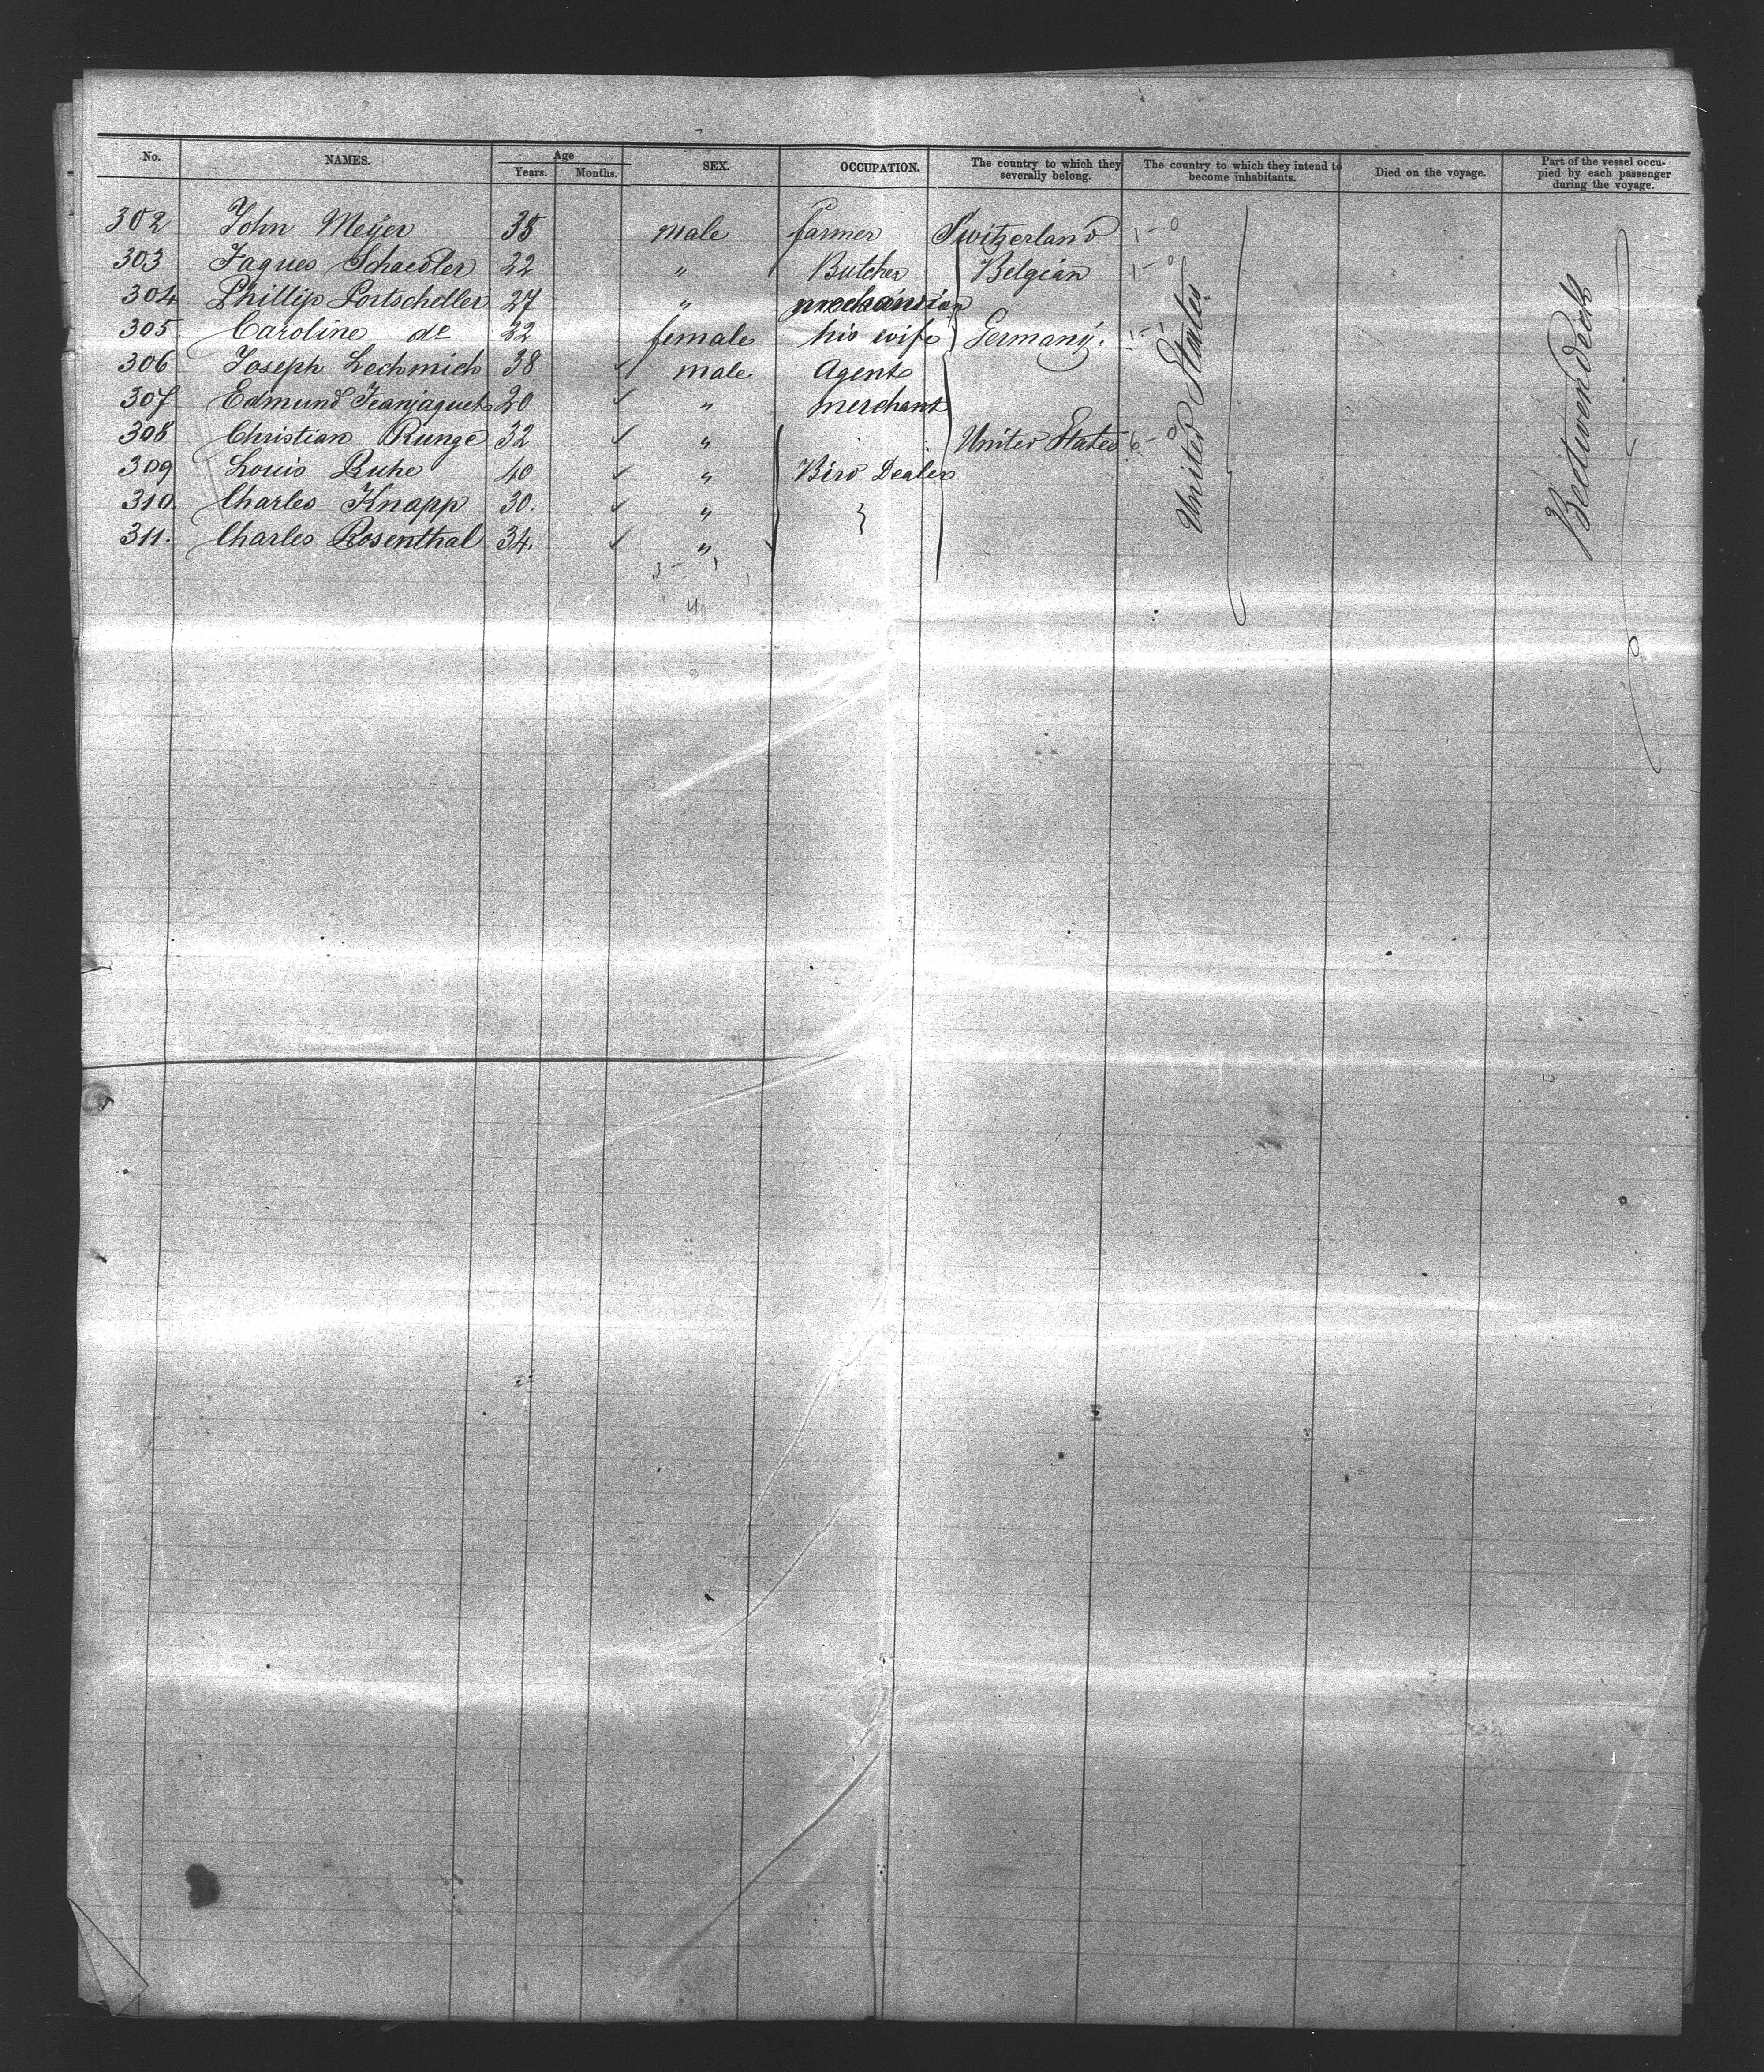 No. NAMES. Age Years. Months. SEX. OCCUPATION. The country to which they severally belong. The country to which they intend to become inhabitants. Died on the voyage. Part of the vessel occupied by each passenger during the voyage.
302 John Meijer 35 male farmer Switzerland 1-0
303 Jaques Schaedler 22 " Butcher Belgian 1-0
304 Phillip Portscheller 27 " mechanician
305 Caroline do 22 female his wife Germany. 1-1
306 Joseph Lechmich 38 male Agent
307 Edmund Jeanjaquet 20 " merchant
308 Christian Runge 32 " United States 6-0
309 Louis Ruhe 40 " Bird Dealer
310. Charles Knapp 30. "
311. Charles Rosenthal 34. "
United States
Bedtwendeck